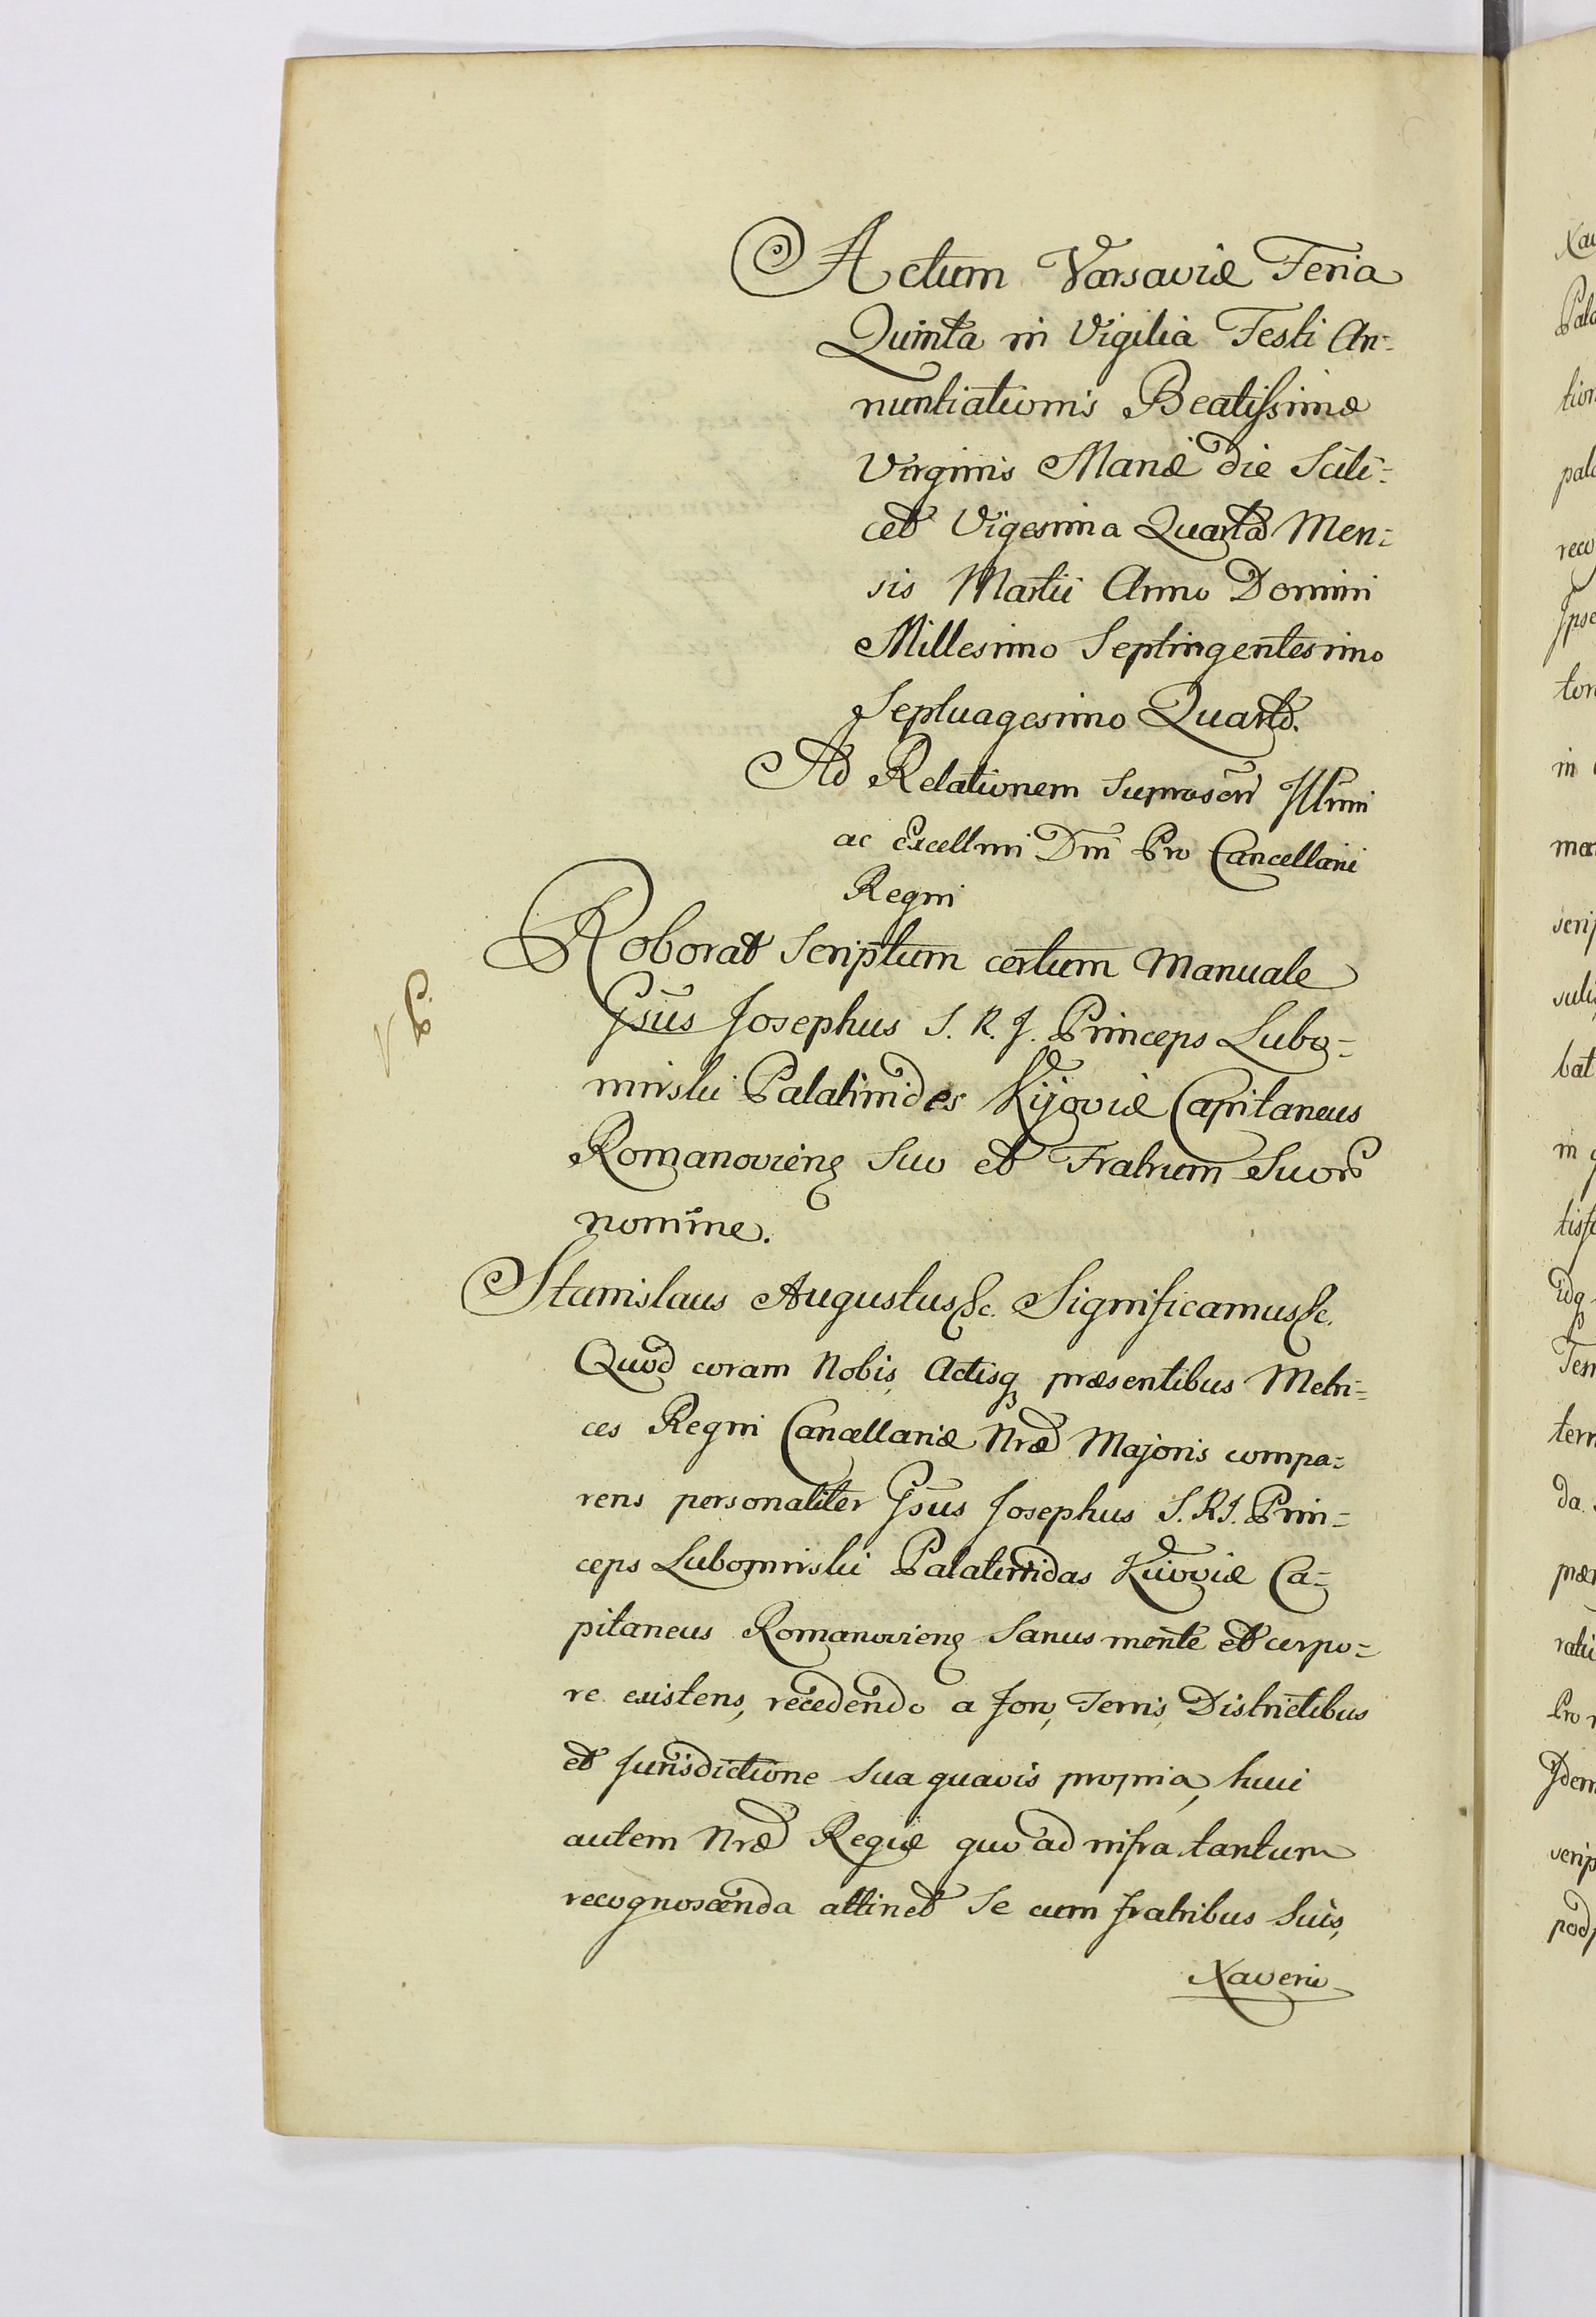 Actum Varsaviæ Feria
Quinta in Vigilia Festi An=
nuntiationis Beatissimæ
Virginis Mariæ die Scili=
cet Vigesima Quarta Men=
sis Martii Anno Domini
Millesimo Septingentesimo
Septuagesimo Quarto.
Ad Relationem Suprascri Illmi
ac Excellmi Dni Pro Cancellarii
Regni
Roborat Scriptum certum Manuale
Gsus Josephus S. R. J. Princeps Lubo=
mirski Palatinides Kijoviæ Capitaneus
Romanoviens Suo et Fratrum Suor
nomine.
Stanislaus Augustus &c. Significamus &c.
Quod coram Nobis, Actisq præsentibus Metri=
ces Regni Cancellariæ Nræ Majoris compa=
rens personaliter Gsus Josephus S. R. J. Prin=
ceps Lubomirski Palatinidas Kiioviæ Ca=
pitaneus Romanoviens Sanus mente et corpo=
re existens, recedendo a Foro, Terris, Districtibus
et Jurisdictione sua quavis propria, huic
autem Nræ Regiæ quo ad infra tantum
recognoscenda attinet Se cum fratribus Suis,
Xaverio